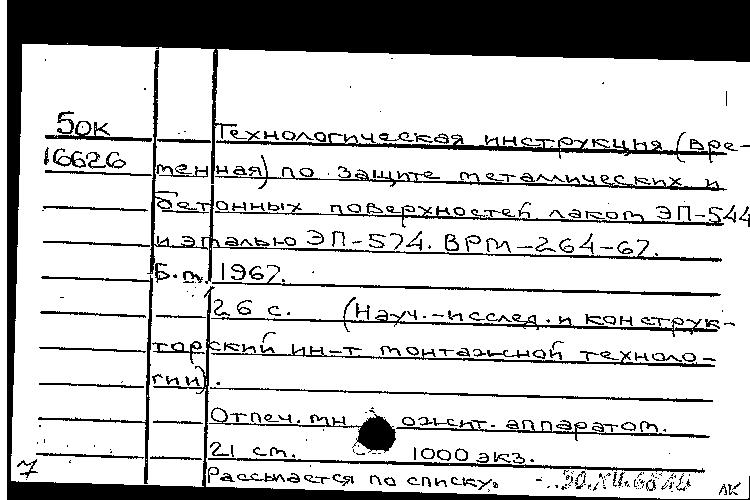 50к
Технологическая инструкция (вре-
16626
менная) по защите металлических и
бетонных поверхностей лаком ЭП-544
и эмалью ЭП-574. ВРМ-264-67.
Б.м. 1967.
26 с. (Науч.-исслед. и конструк-
торский ин-т монтажной техноло-
гии).
Отпеч. мн ожит. аппаратом.
21 см. 1000 экз.
7
Рассылается по списку.
ЛК